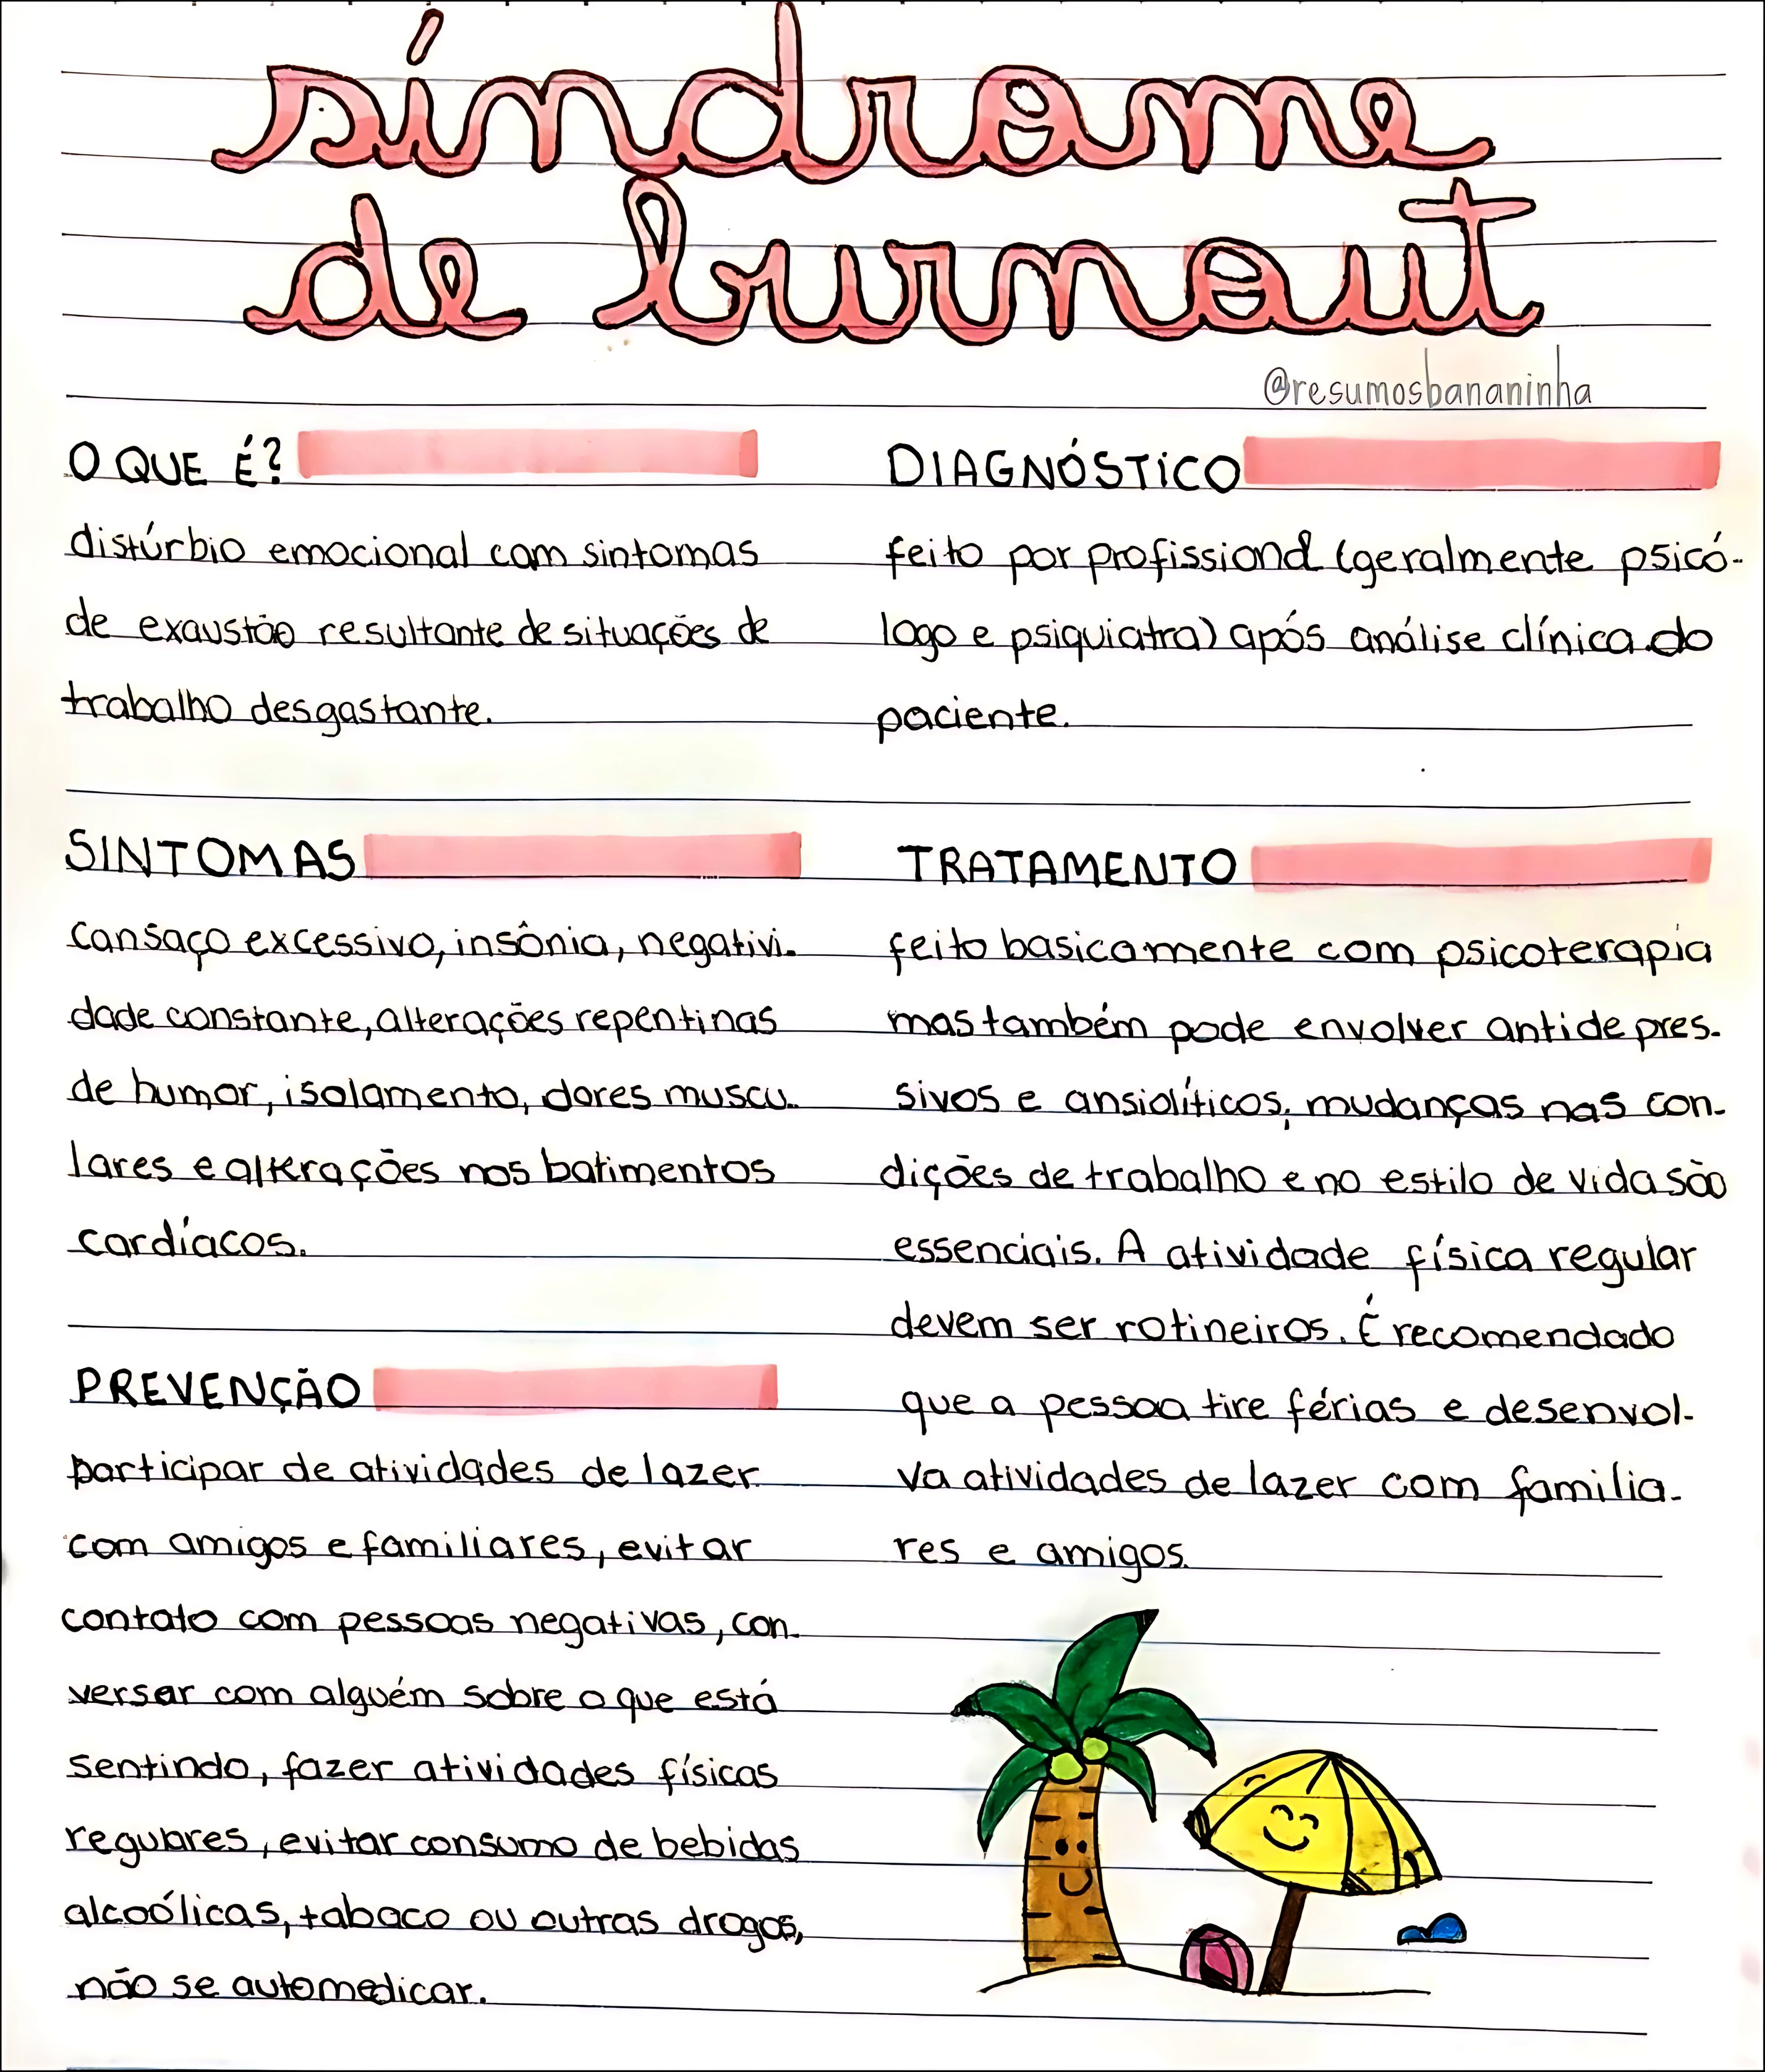 síndrome
de burnout
@resumosbananinha
O QUE É?
distúrbio emocional com sintomas
de exaustão resultante de situações de
trabalho desgastante.
SINTOMAS
cansaço excessivo, insônia, negativi-
dade constante, alterações repentinas
de humor, isolamento, dores muscu-
lares e alterações nos batimentos
cardíacos.
PREVENÇÃO
participar de atividades de lazer
com amigos e familiares, evitar
contato com pessoas negativas, con-
versar com alguém sobre o que está
sentindo, fazer atividades físicas
regulares, evitar consumo de bebidas
alcoólicas, tabaco ou outras drogas,
não se automedicar.
DIAGNÓSTICO
feito por profissional (geralmente psicó-
logo e psiquiatra) após análise clínica do
paciente.
TRATAMENTO
feito basicamente com psicoterapia
mas também pode envolver antidepres-
sivos e ansiolíticos; mudanças nas con-
dições de trabalho e no estilo de vida são
essenciais. A atividade física regular
devem ser rotineiros. É recomendado
que a pessoa tire férias e desenvol-
va atividades de lazer com familia-
res e amigos.